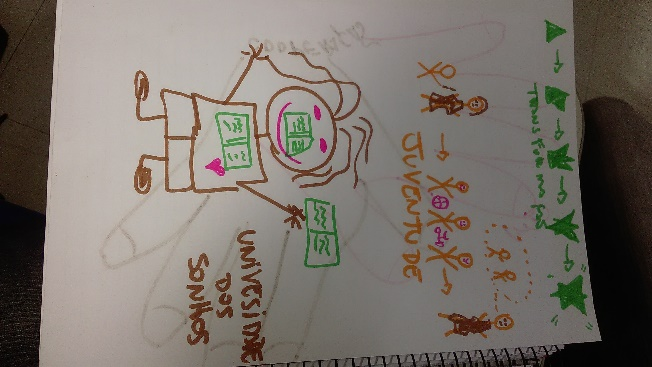 TRANSFORMAÇÃO
JUVENTUDE
UNIVESIDADE
DOS
SONHOS